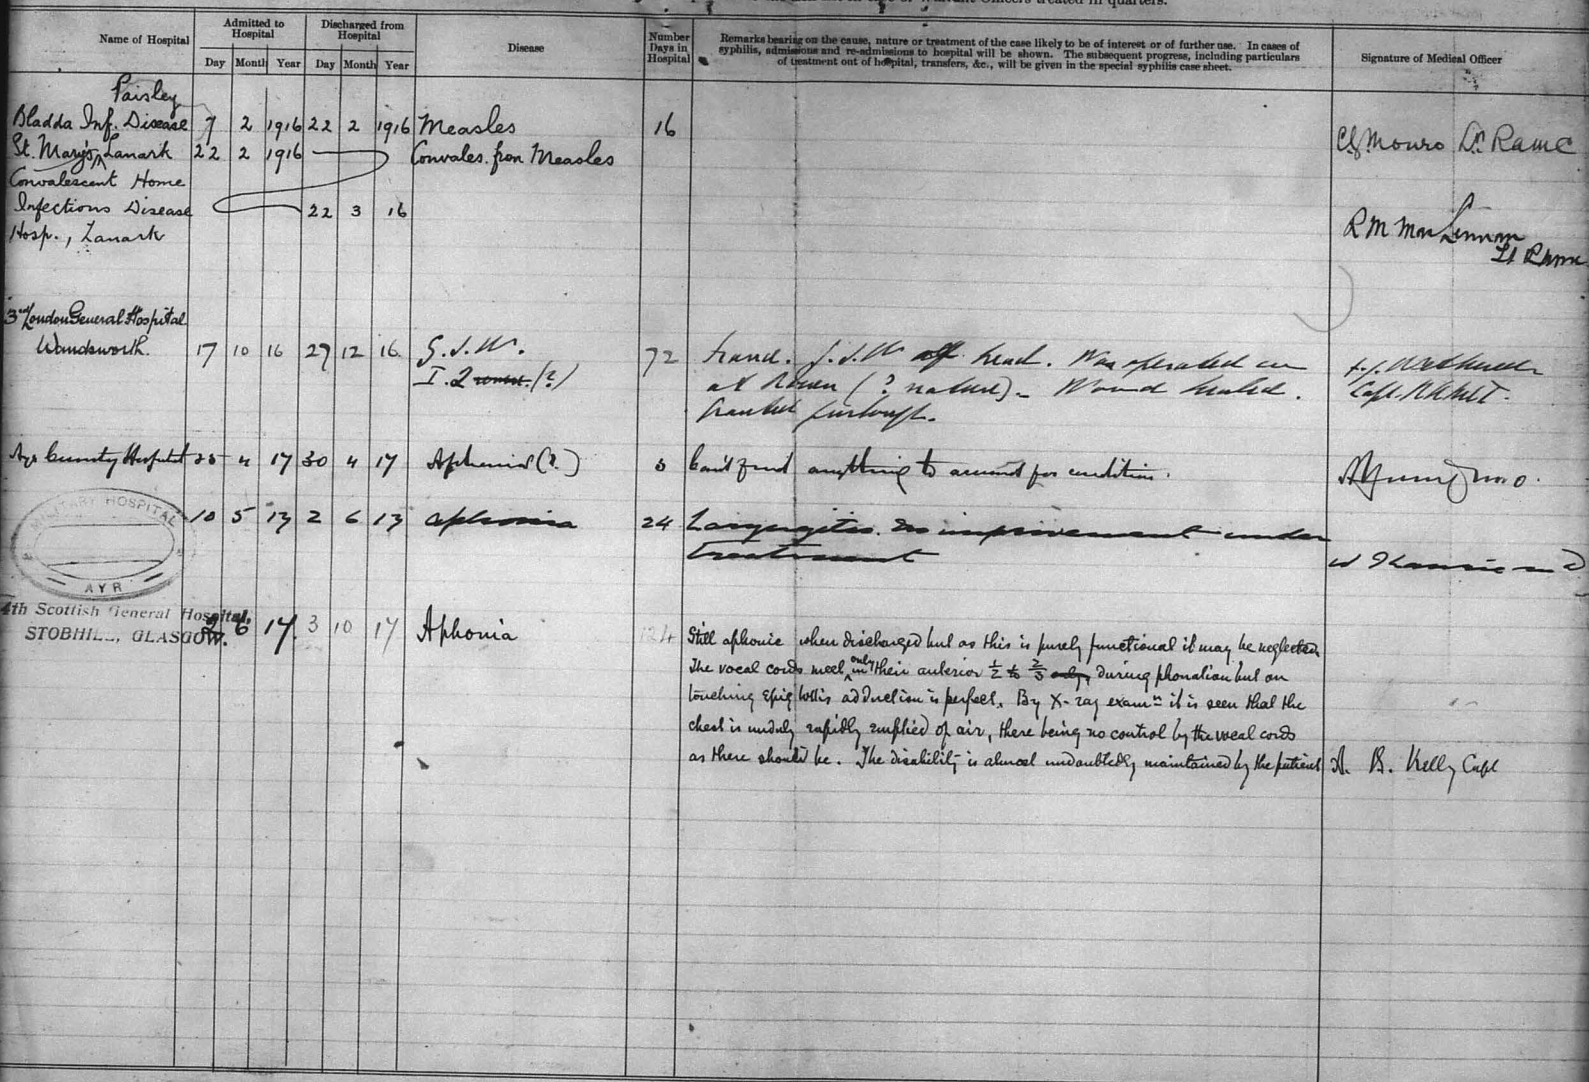 Warrant Officers treated in quarters.
Name of Hospital
Admitted to Hospital
Discharged from Hospital
Day Month Year Day Month Year
Disease
Number Days in Hospital
Remarks bearing on the cause, nature or treatment of the case likely to be of interest or of further use. In cases of
syphilis, admissions and re-admissions to hospital will be shown. The subsequent progress, including particulars
of treatment out of hospital, transfers, &c., will be given in the special syphilis case sheet.
Signature of Medical Officer
Paisley
Bladda Inf. Disease 7 2 1916 22 2 1916 Measles 16 Munro Lt Ramc
St. Mary's Lanark 22 2 1916 Convales. from Measles
Convalescent Home
Infectious Disease 22 3 16
Hosp., Lanark
R M MacLennan
Lt Ramc
3rd London General Hospital
Wandsworth. 17 10 16 27 12 16 G.S.W. 72 G.S.W. head. Was operated on
I. 2 (?) at Rouen (? nature). Wound healed. Capt.
Granted furlough.
Ayr County Hospital 25 4 17 30 4 17 Aphonia (?) 5 Can't find anything to account for condition. Young M.O.
MILITARY HOSPITAL
AYR
10 5 17 2 6 17 Aphonia 24 Laryngitis. No improvement under
treatment
4th Scottish General Hospital,
STOBHILL, GLASGOW.
2 6 17. 3 10 17 Aphonia 124 Still aphonic when discharged but as this is purely functional it may be neglected.
The vocal cords meet only in their anterior ½ to ⅔ only, during phonation but on
touching Epiglottis adduction is perfect. By X-ray examn it is seen that the
chest is unduly rapidly emptied of air, there being no control by the vocal cords
as there should be. The disability is almost undoubtedly maintained by the patient A. B. Kelly Capt